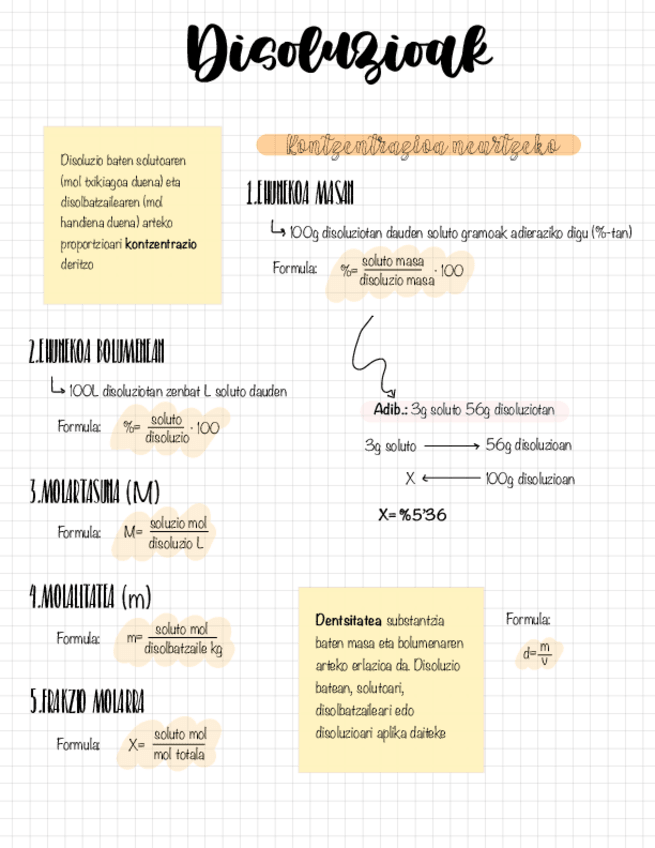 Disoluzioak
Disoluzio baten solutoaren
(mol txikiagoa duena) eta
disolbatzailearen (mol
handiena duena) arteko
proportzioari kontzentrazio
deritzo
Kontzentrazioa neurtzeko
1.EHUNEKOA MASAN
↳ 100g disoluziotan dauden soluto gramoak adieraziko digu (%-tan)
Formula: %= soluto masa / disoluzio masa · 100
2.EHUNEKOA BOLUMENEAN
↳ 100L disoluziotan zenbat L soluto dauden
Formula: %= soluto / disoluzio · 100
Adib.: 3g soluto 56g disoluziotan
3g soluto → 56g disoluzioan
X ← 100g disoluzioan
X= %5'36
3.MOLARTASUNA (M)
Formula: M= soluzio mol / disoluzio L
4.MOLALITATEA (m)
Formula: m= soluto mol / disolbatzaile kg
5.FRAKZIO MOLARRA
Formula: X= soluto mol / mol totala
Dentsitatea substantzia
baten masa eta bolumenaren
arteko erlazioa da. Disoluzio
batean, solutoari,
disolbatzaileari edo
disoluzioari aplika daiteke
Formula:
d= m / v